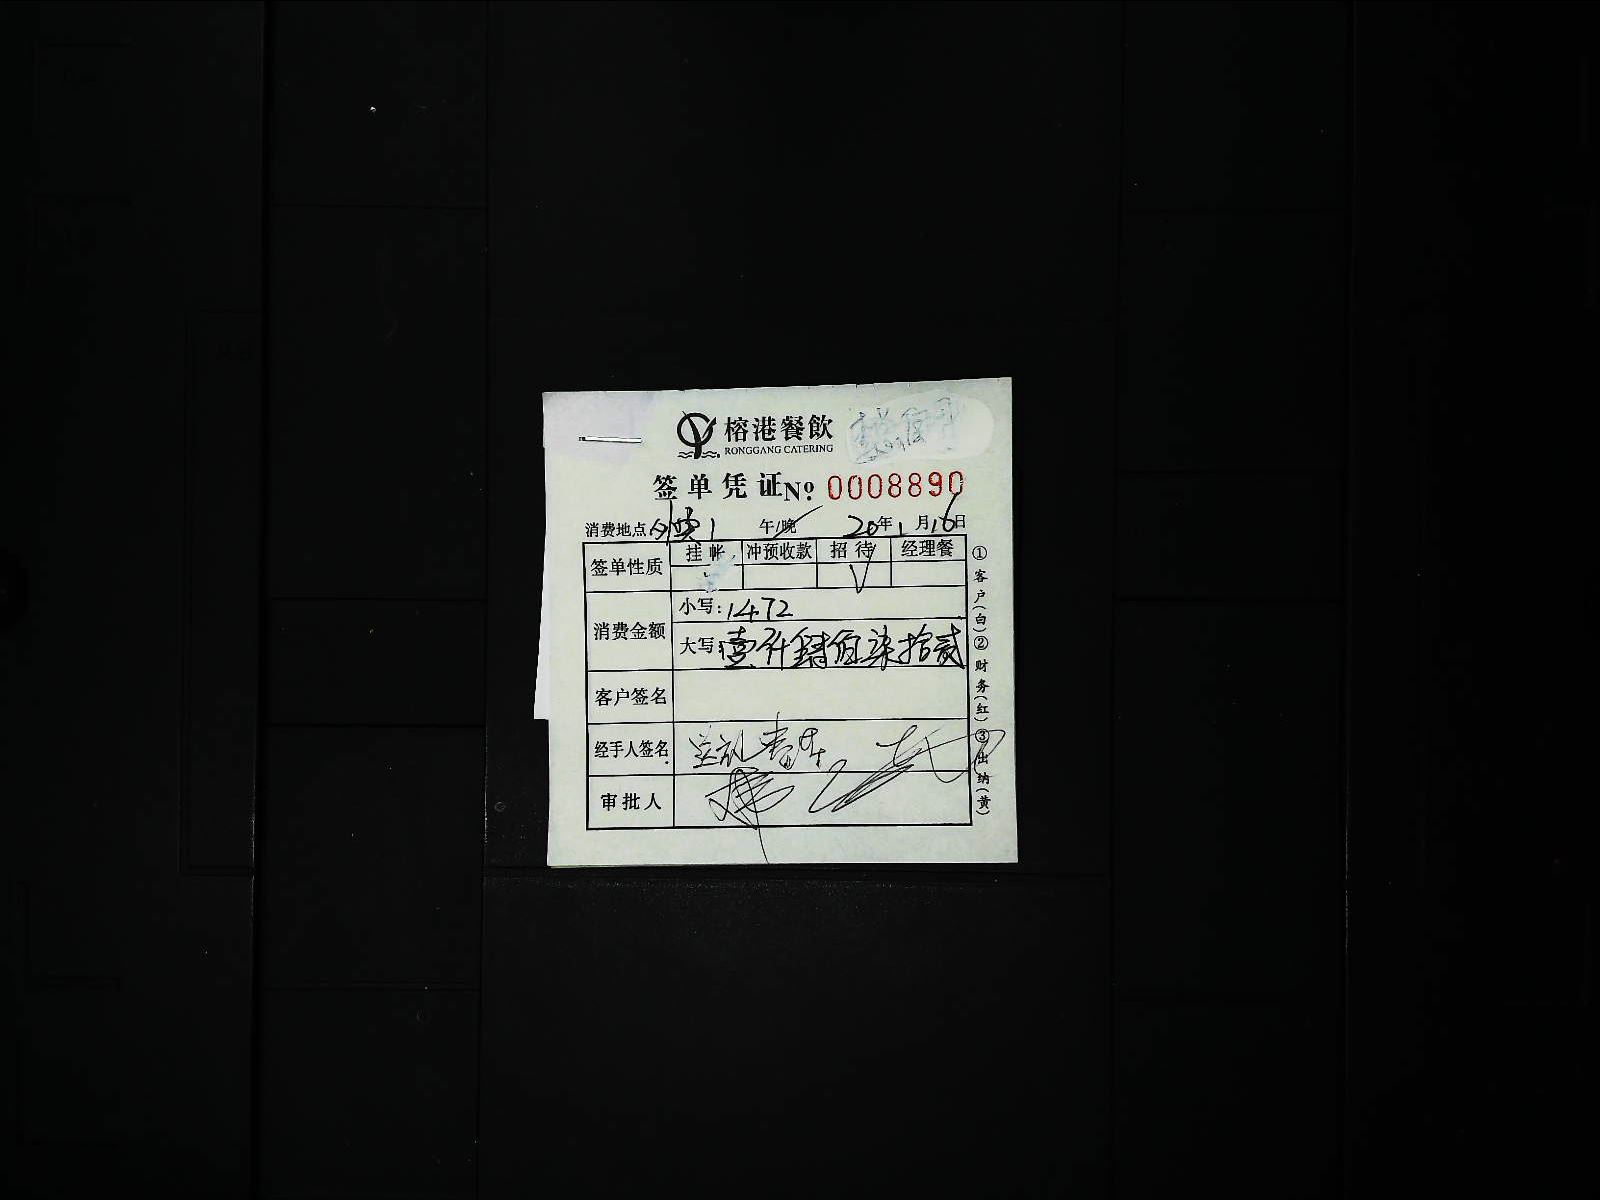 榕港餐飲
RONGGANG CATERING
签单凭证 No 0008890
消费地点: 1 午/晚 20年1月16日
签单性质 挂帐 冲预收款 招待 经理餐
√
消费金额 小写:1472
大写:壹仟肆佰柒拾贰
客户签名
经手人签名
审批人
①客户(白)②财务(红)③出纳(黄)